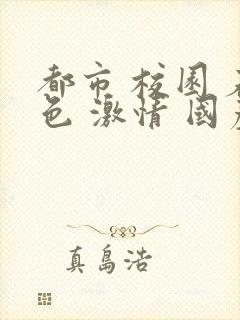 都市 校园
色 激情 国
真島浩